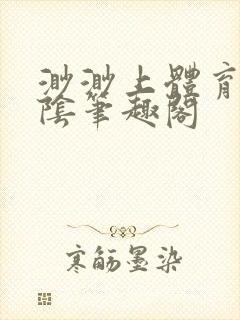 渺渺上體育
陰筆趣閣
寒舫墨染